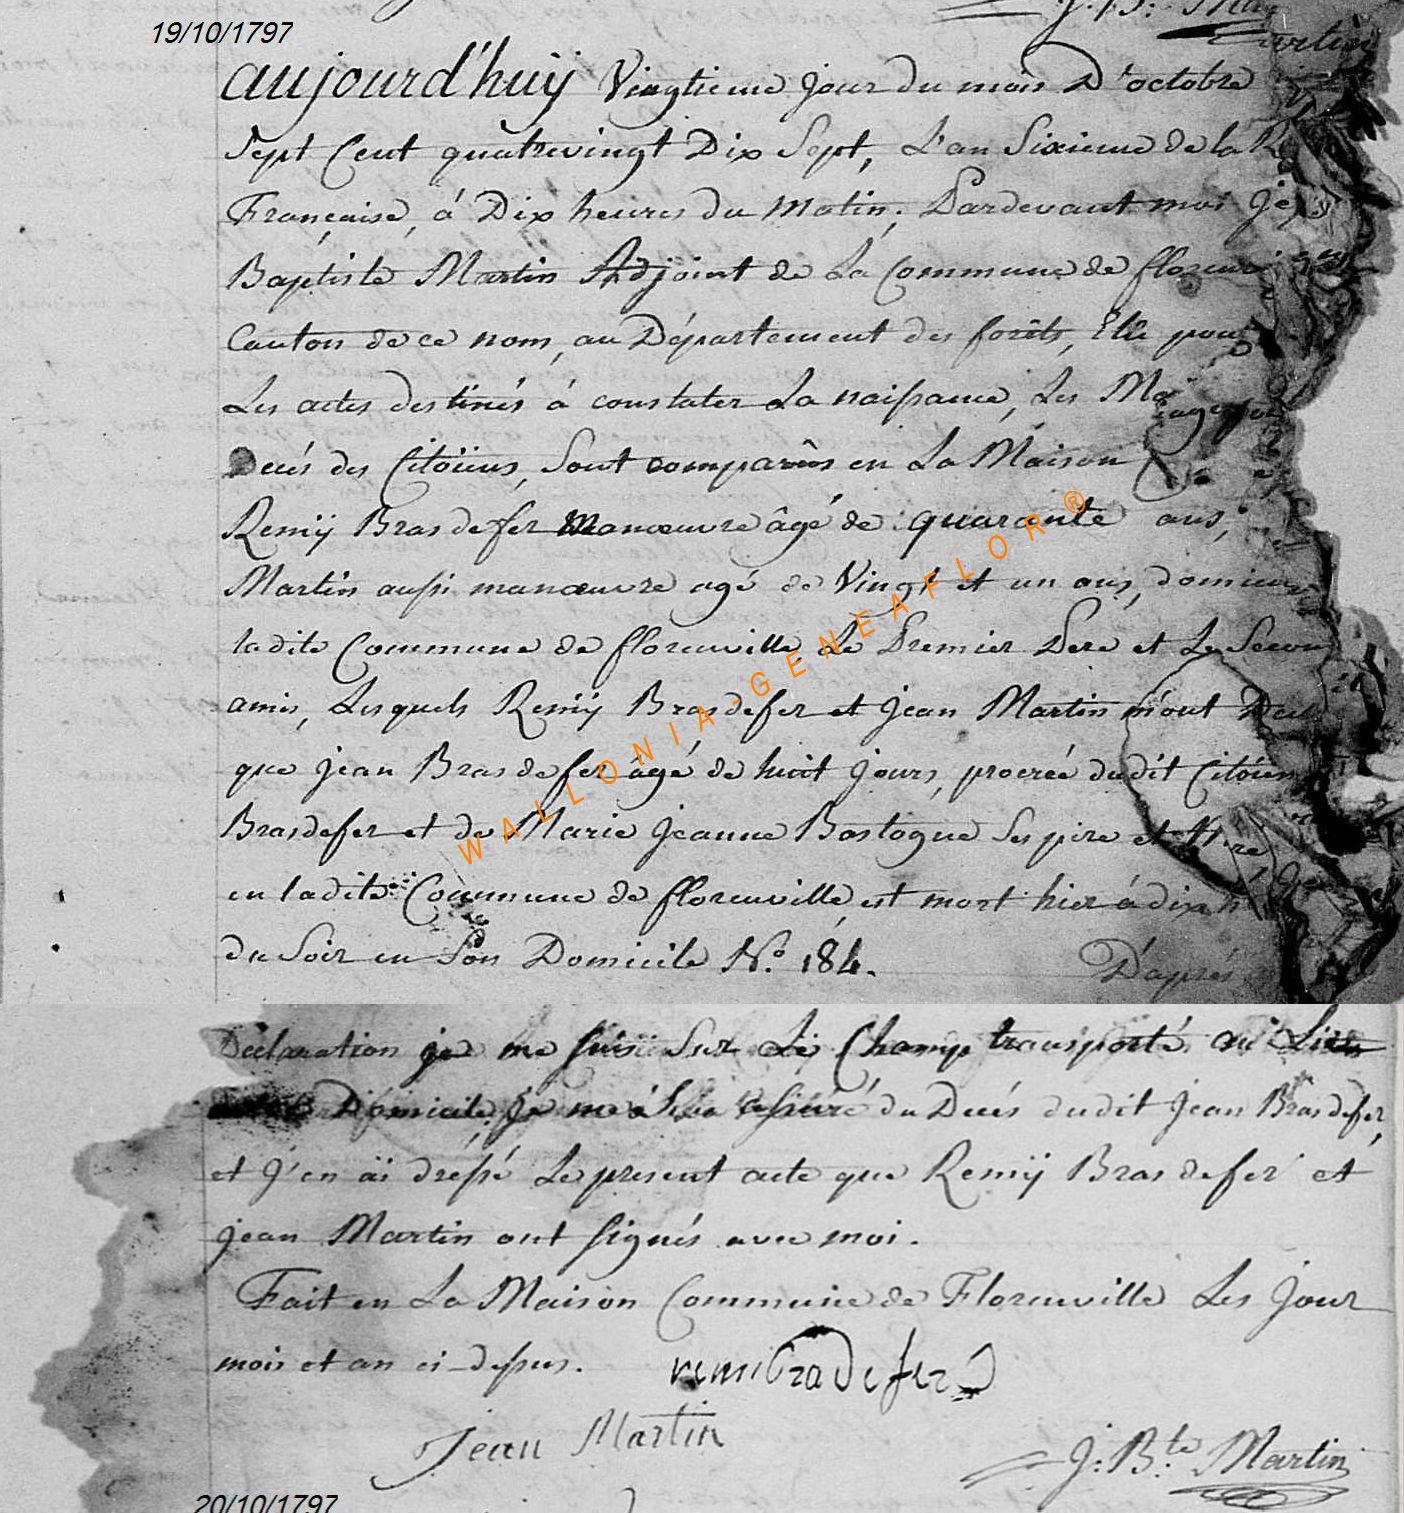 J. B. Mar
artin
19/10/1797
aujourd'huÿ Vingtieme jour du mois D'octobre
Sept Cent quatrevingt Dix Sept, L'an Sixieme de la R
Française, à Dix heures du Matin, Pardevant moi Je
Baptiste Martin Adjoint de La Commune de florenv
Canton de ce nom, au Département des forêts, Elû pour
Les actes destinés à constater La naissance, Les Mariages
Decés des Citoïens, Sont comparûs en La Maison
Remÿ Brasdefer Manœuvre âgé de quarante ans,
Martin aussi manœuvre agé de Vingt et un ans, domici
ladite Commune de florenville Le Premier Pere et Le Secon
amis, Lesquels Remÿ Brasdefer et Jean Martin m'ont
que Jean Brasdefer âgé de huit jours, procréé dudit Citoïen
Brasdefer et de Marie Jeanne Bastogne Ses pere et Mere
en ladite Commune de florenville, est mort hier à dix h
du Soir en Son Domicile N.º 184. D'après
Déclaration je me suis Sur Le Champ transporté au Lieu
Domicile, je me assuré du Decés dudit Jean Brasdefer,
et J'en aï dressé Le present acte que Remÿ Brasdefer et
Jean Martin ont signés avec moi.
Fait en La Maison Commune de Florenville Les Jour
mois et an ci-dessus. remi bradefer
Jean Martin
J: B.te Martin
20/10/1797
WALLONIA-GENEAFLOR®